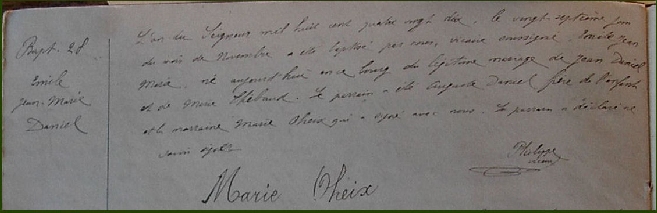 Bapt. 28
Emile
Jean-Marie
Daniel
L'an du Seigneur mil huit cent quatre vingt dix, le vingt septième jour
du mois de Novembre a été baptisé par nous, vicaire soussigné Emile Jean
Marie, né aujourd'hui en ce bourg du légitime mariage de Jean Daniel
et de Marie Thebaud. Le parrain a été Auguste Daniel frère de l'enfant
et la marraine Marie Theix qui a signé avec nous. Le parrain a déclaré ne
savoir signer
Philippe
vicaire
Marie Theix